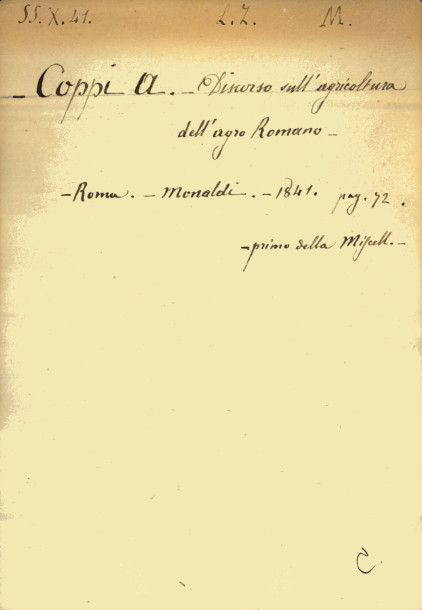 SS. X. 41. L. Z. M.
- Coppi A. - Discorso sull'agricoltura
dell'agro Romano -
- Roma. - Monaldi. - 1841. pag. 72.
- primo della Miscell. -
C.